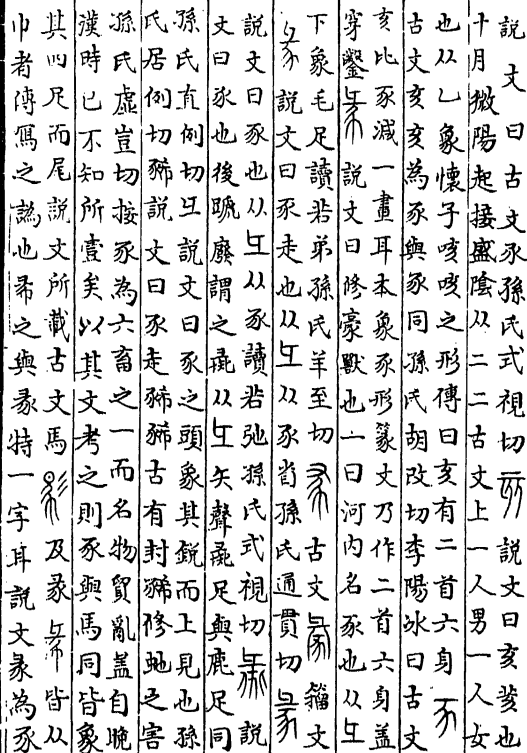 說文曰古文豕孫氏式視切 說文曰亥荄也
十月微陽起接盛陰从二二古文上一人男一人女
也从乙象懷子咳咳之形傳曰亥有二首六身
古文亥亥為豕與豕同孫氏胡改切李陽冰曰古文
亥比豕減一畫耳本象豕形篆文乃作二首六身蓋
穿鑿 說文曰脩豪獸也一曰河內名豕也从彑
下象毛足讀若弟孫氏羊至切 古文 籀文
說文曰豕走也从彑从豕省孫氏通貫切
說文曰豕也从彑从豕讀若弛孫氏式視切 說
文曰豕也後蹏廢謂之彘从彑矢聲彘足與鹿足同
孫氏直例切彑說文曰豕之頭象其銳而上見也孫
氏居例切豨說文曰豕走豨豨古有封豨脩蛇之害
孫氏虛豈切按豕為六畜之一而名物貿亂蓋自晚
漢時已不知所壹矣以其文考之則豕與馬同皆象
其四足而尾說文所載古文馬 及彖 皆从
巾者傳寫之譌也㣇之與彖特一字耳說文彖為豕